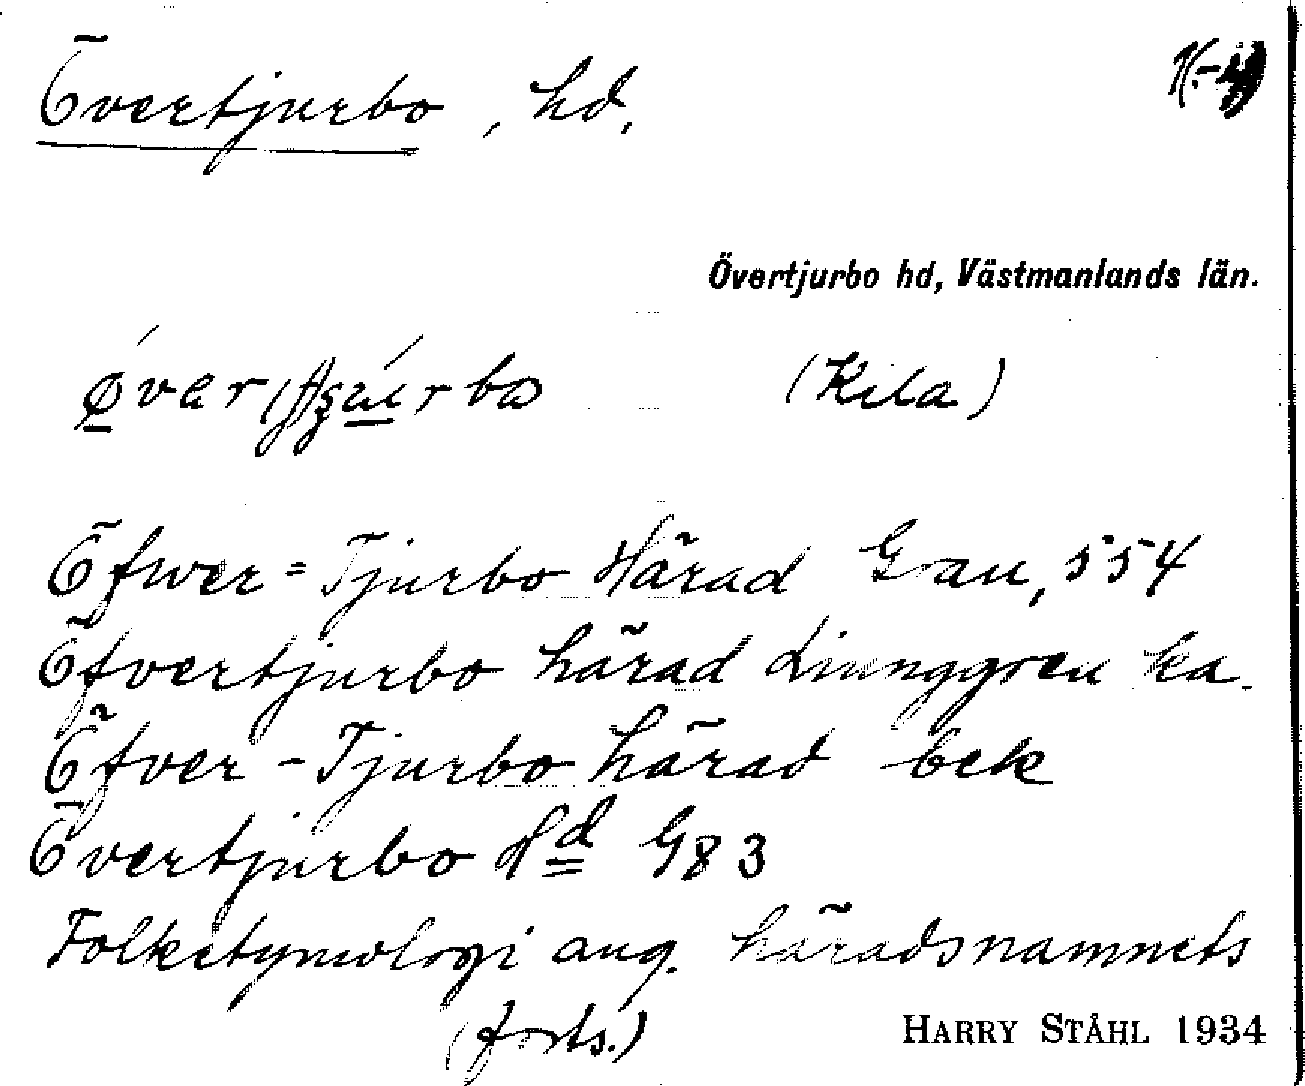 Övertjurbo, hd.
Övertjurbo hd, Västmanlands län.
(Kila)
Öfwer=Tjurbo Härad Grau, 554
Öfvertjurbo härad Ljunggren ka.
Öfver-Tjurbo härad bek
Övertjurbo Hd G83
Folketymologi ang. häradsnamnets
(forts.)
HARRY STÅHL 1934